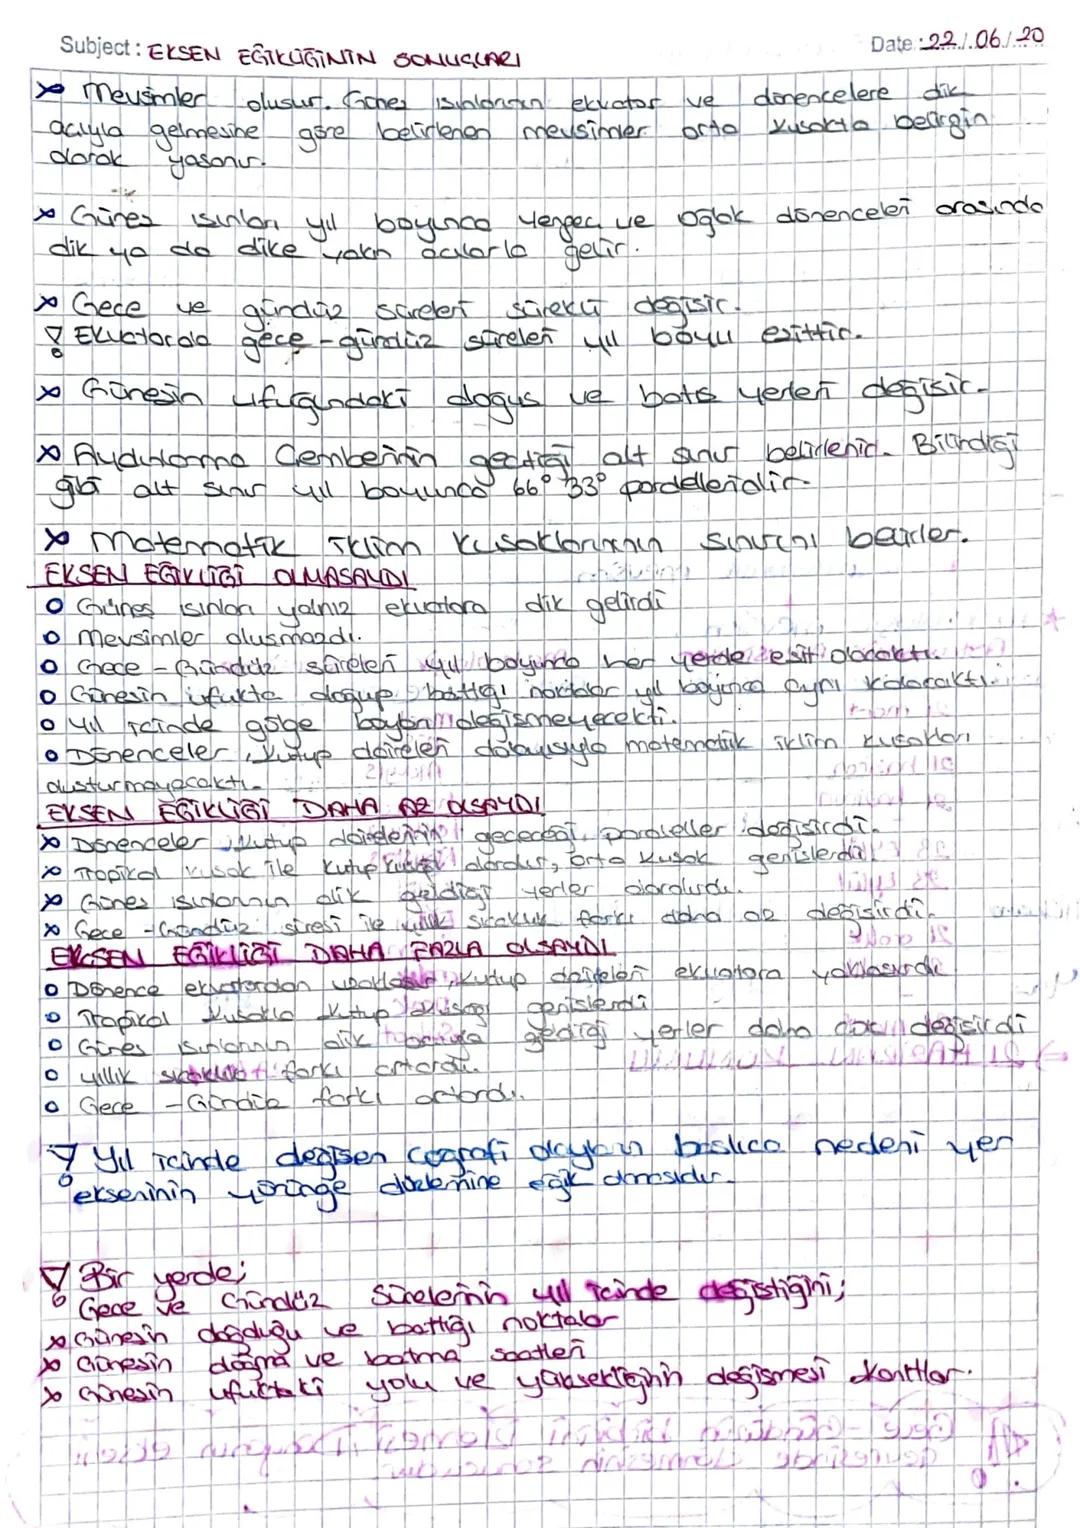 Subject : EKSEN EĞİKLİĞİNİN SONUÇLARI
Date : 22./.06./.20
Mevsimler oluşur. Güneş ışınlarının ekvator ve dönencelere dik
açıyla gelmesine göre belirlenen mevsimler orta kuşakta belirgin
olarak yaşanır.
Güneş ışınları yıl boyunca Yengeç ve Oğlak dönenceleri arasında
dik ya da dike yakın açılarla gelir.
Gece ve gündüz süreleri sürekli değişir.
Ekvatorda gece - gündüz süreleri yıl boyu eşittir.
Güneşin ufuğundaki doğuş ve batış yerleri değişir.
Aydınlanma Çemberinin geçtiği alt sınır belirlenir. Bilindiği
gibi alt sınır yıl boyunca 66° 33° paralelleridir.
Matematik İklim Kuşaklarının sınırını belirler.
EKSEN EĞİKLİĞİ OLMASAYDI
Güneş ışınları yalnız ekvatora dik gelirdi
Mevsimler oluşmazdı.
Gece - Gündüz süreleri yıl boyunca her yerde eşit olacaktı.
Güneşin ufukta doğup battığı noktalar yıl boyunca aynı kalacaktı.
Yıl içinde gölge boyları değişmeyecekti.
Dönenceler, Kutup daireleri dolayısıyla matematik iklim kuşakları
oluşturmayacaktı.
EKSEN EĞİKLİĞİ DAHA AZ OLSAYDI
Dönenceler, Kutup dairelerinin geçeceği paraleller değişirdi.
Tropikal kuşak ile Kutup kuşağı daralır, orta kuşak genişlerdi.
Güneş ışınlarının dik geldiği yerler daralırdı.
Gece - Gündüz süresi ile yıllık sıcaklık farkı daha az değişirdi.
EKSEN EĞİKLİĞİ DAHA FAZLA OLSAYDI
Dönence ekvatordan uzaklaşır, Kutup daireleri ekvatora yaklaşırdı
Tropikal kuşakla Kutup kuşağı genişlerdi
Güneş ışınlarının dik geldiği yerler daha çok değişirdi
Yıllık sıcaklık farkı artardı.
Gece - Gündüz farkı artardı.
Yıl içinde değişen coğrafi olayların başlıca nedeni yer
ekseninin yörünge düzlemine eğik olmasıdır.
Bir yerde;
Gece ve Gündüz Sürelerinin yıl içinde değiştiğini;
Güneşin doğduğu ve battığı noktalar
Güneşin doğma ve batma saatleri
Güneşin ufuktaki yolu ve yüksekliğinin değişmesi kanıtlar.